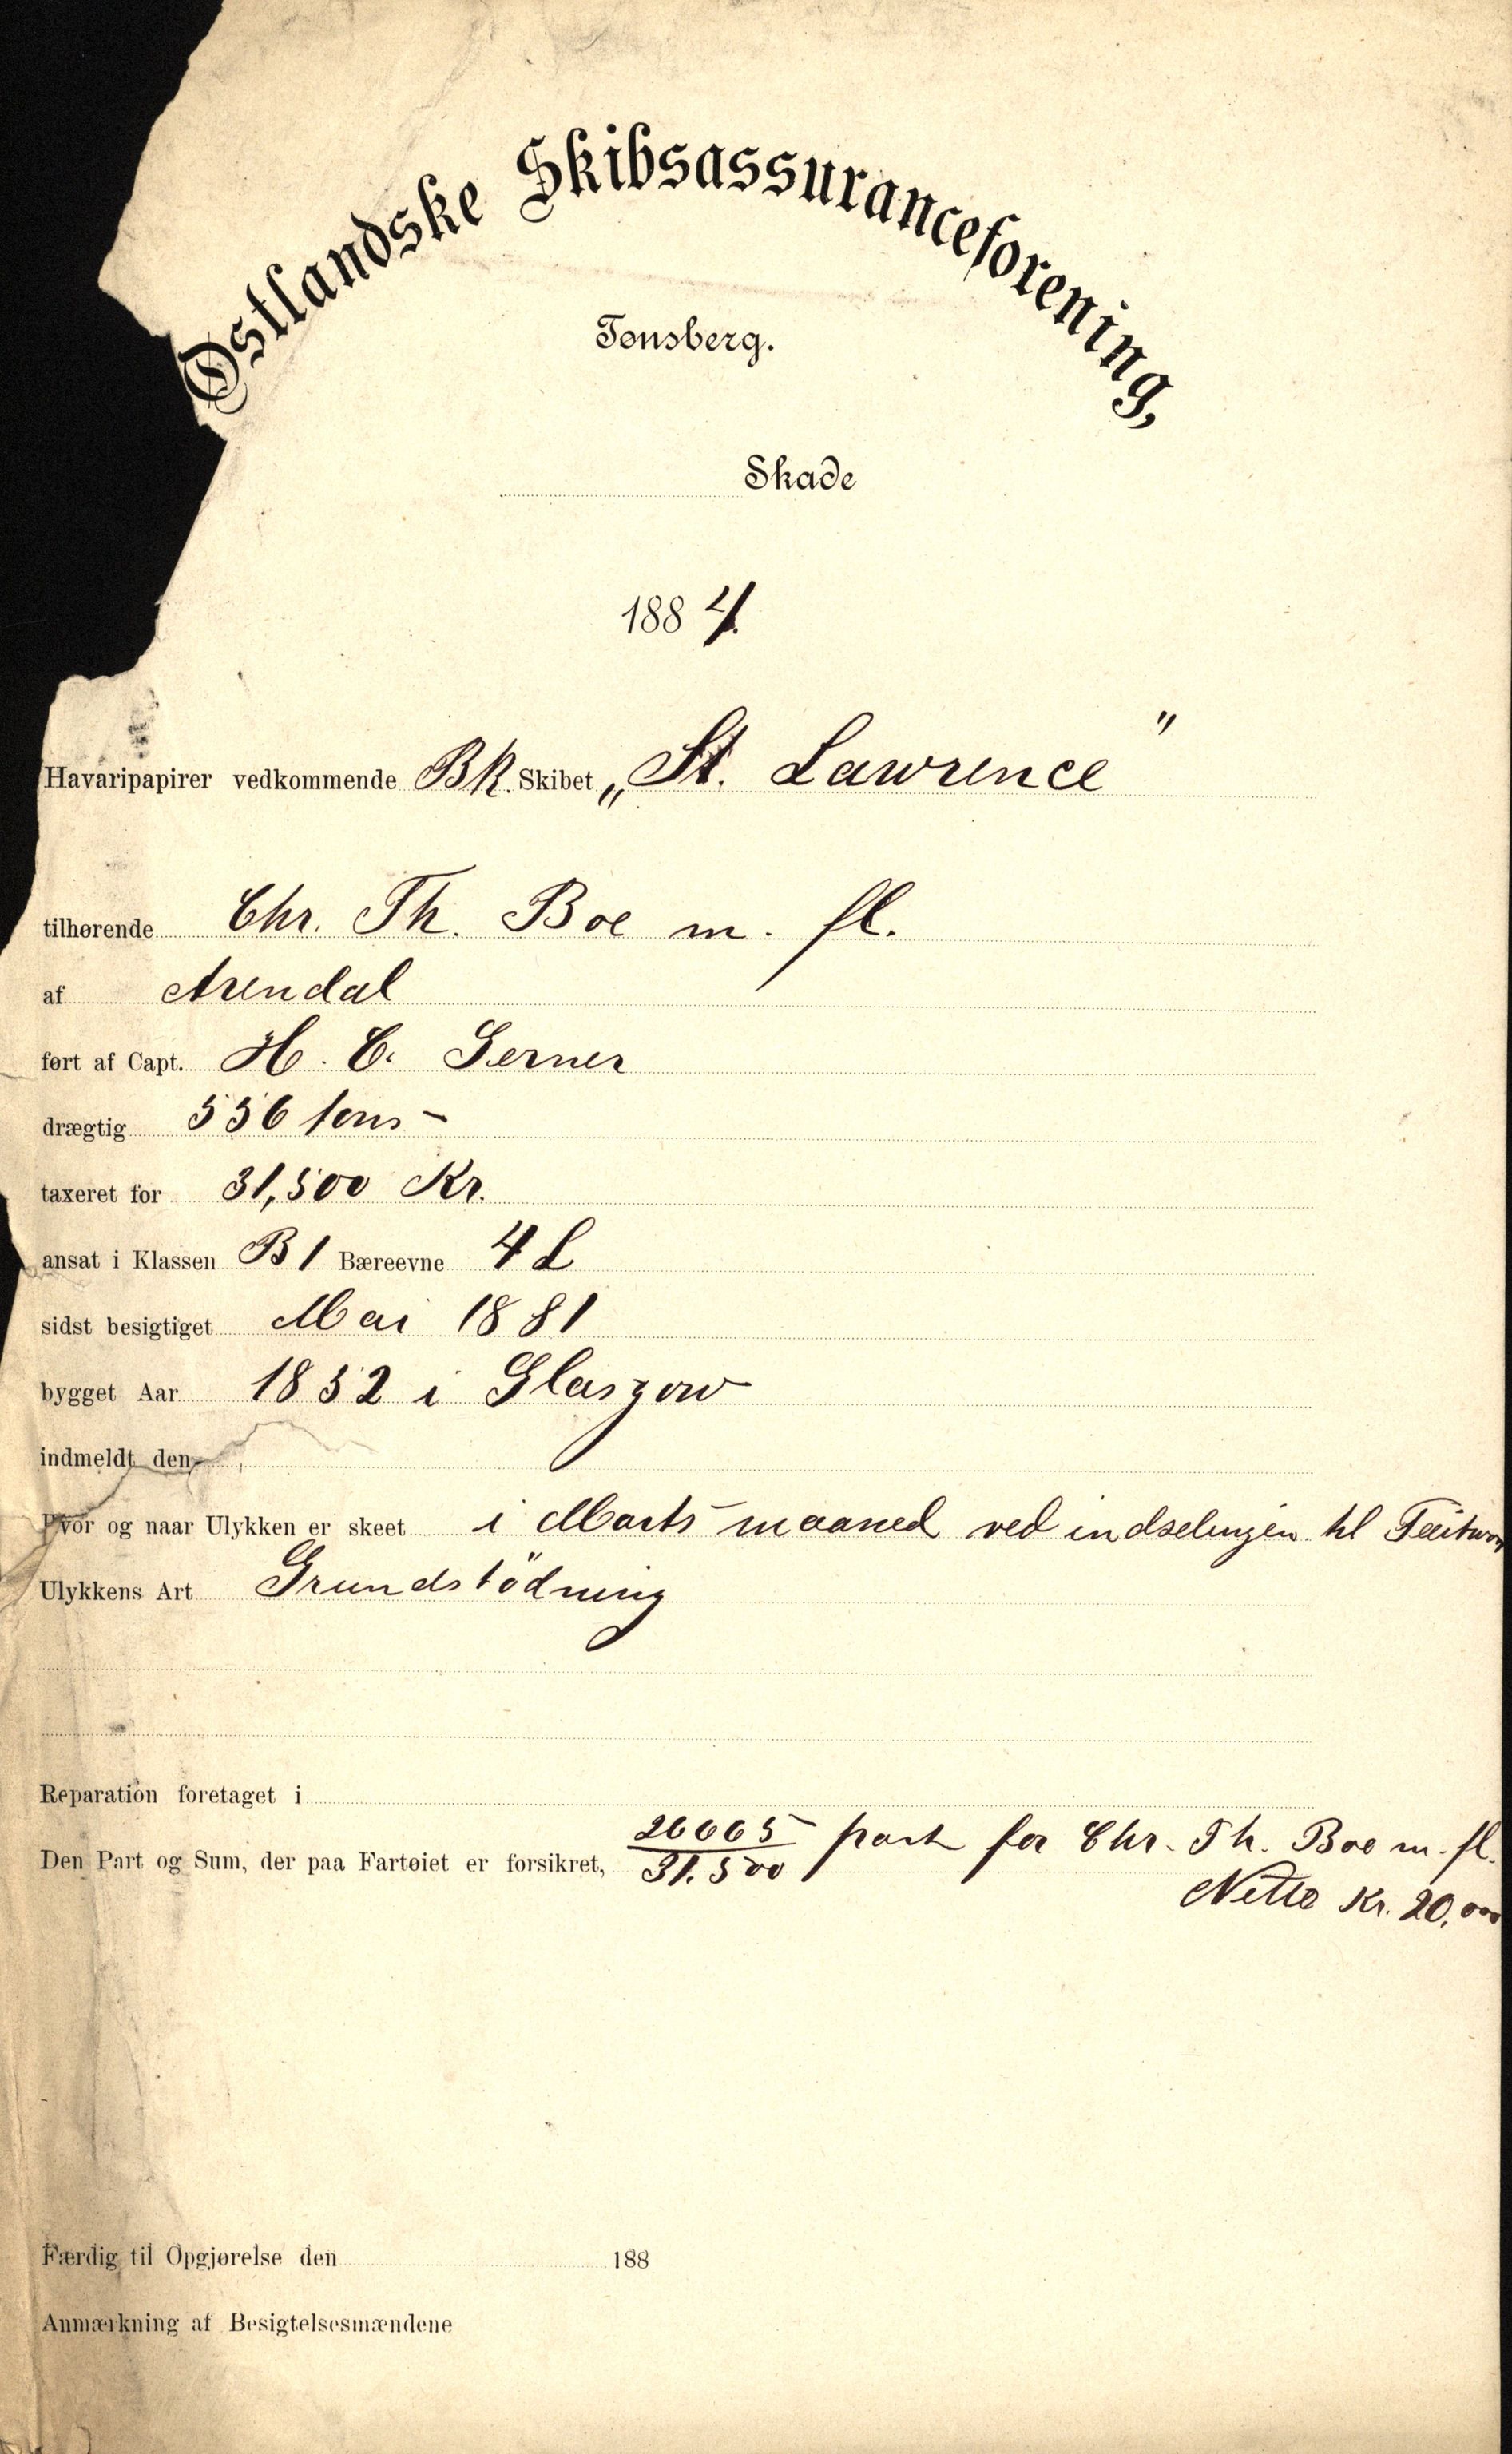 Østlandske Skibsassuranceforening,
Tønsberg.
Skade
1884.
Havaripapirer vedkommende Bk. Skibet „St. Lawrence"
tilhørende Chr. Th. Boe m. fl.
af Arendal
ført af Capt. H. C. Gerner
drægtig 556 tons -
taxeret for 31,500 Kr.
ansat i Klassen B1 Bæreevne 4 L
sidst besigtiget Mai 1881
bygget Aar 1852 i Glasgow
indmeldt den
Hvor og naar Ulykken er skeet i Marts maaned ved indseilingen til
Ulykkens Art Grundstödning
Reparation foretaget i
Den Part og Sum, der paa Fartøiet er forsikret, 26665/31.500 part for Chr. Th. Boe m. fl.
Netto Kr. 20,000
Færdig til Opgjørelse den 188
Anmærkning af Besigtelsesmændene